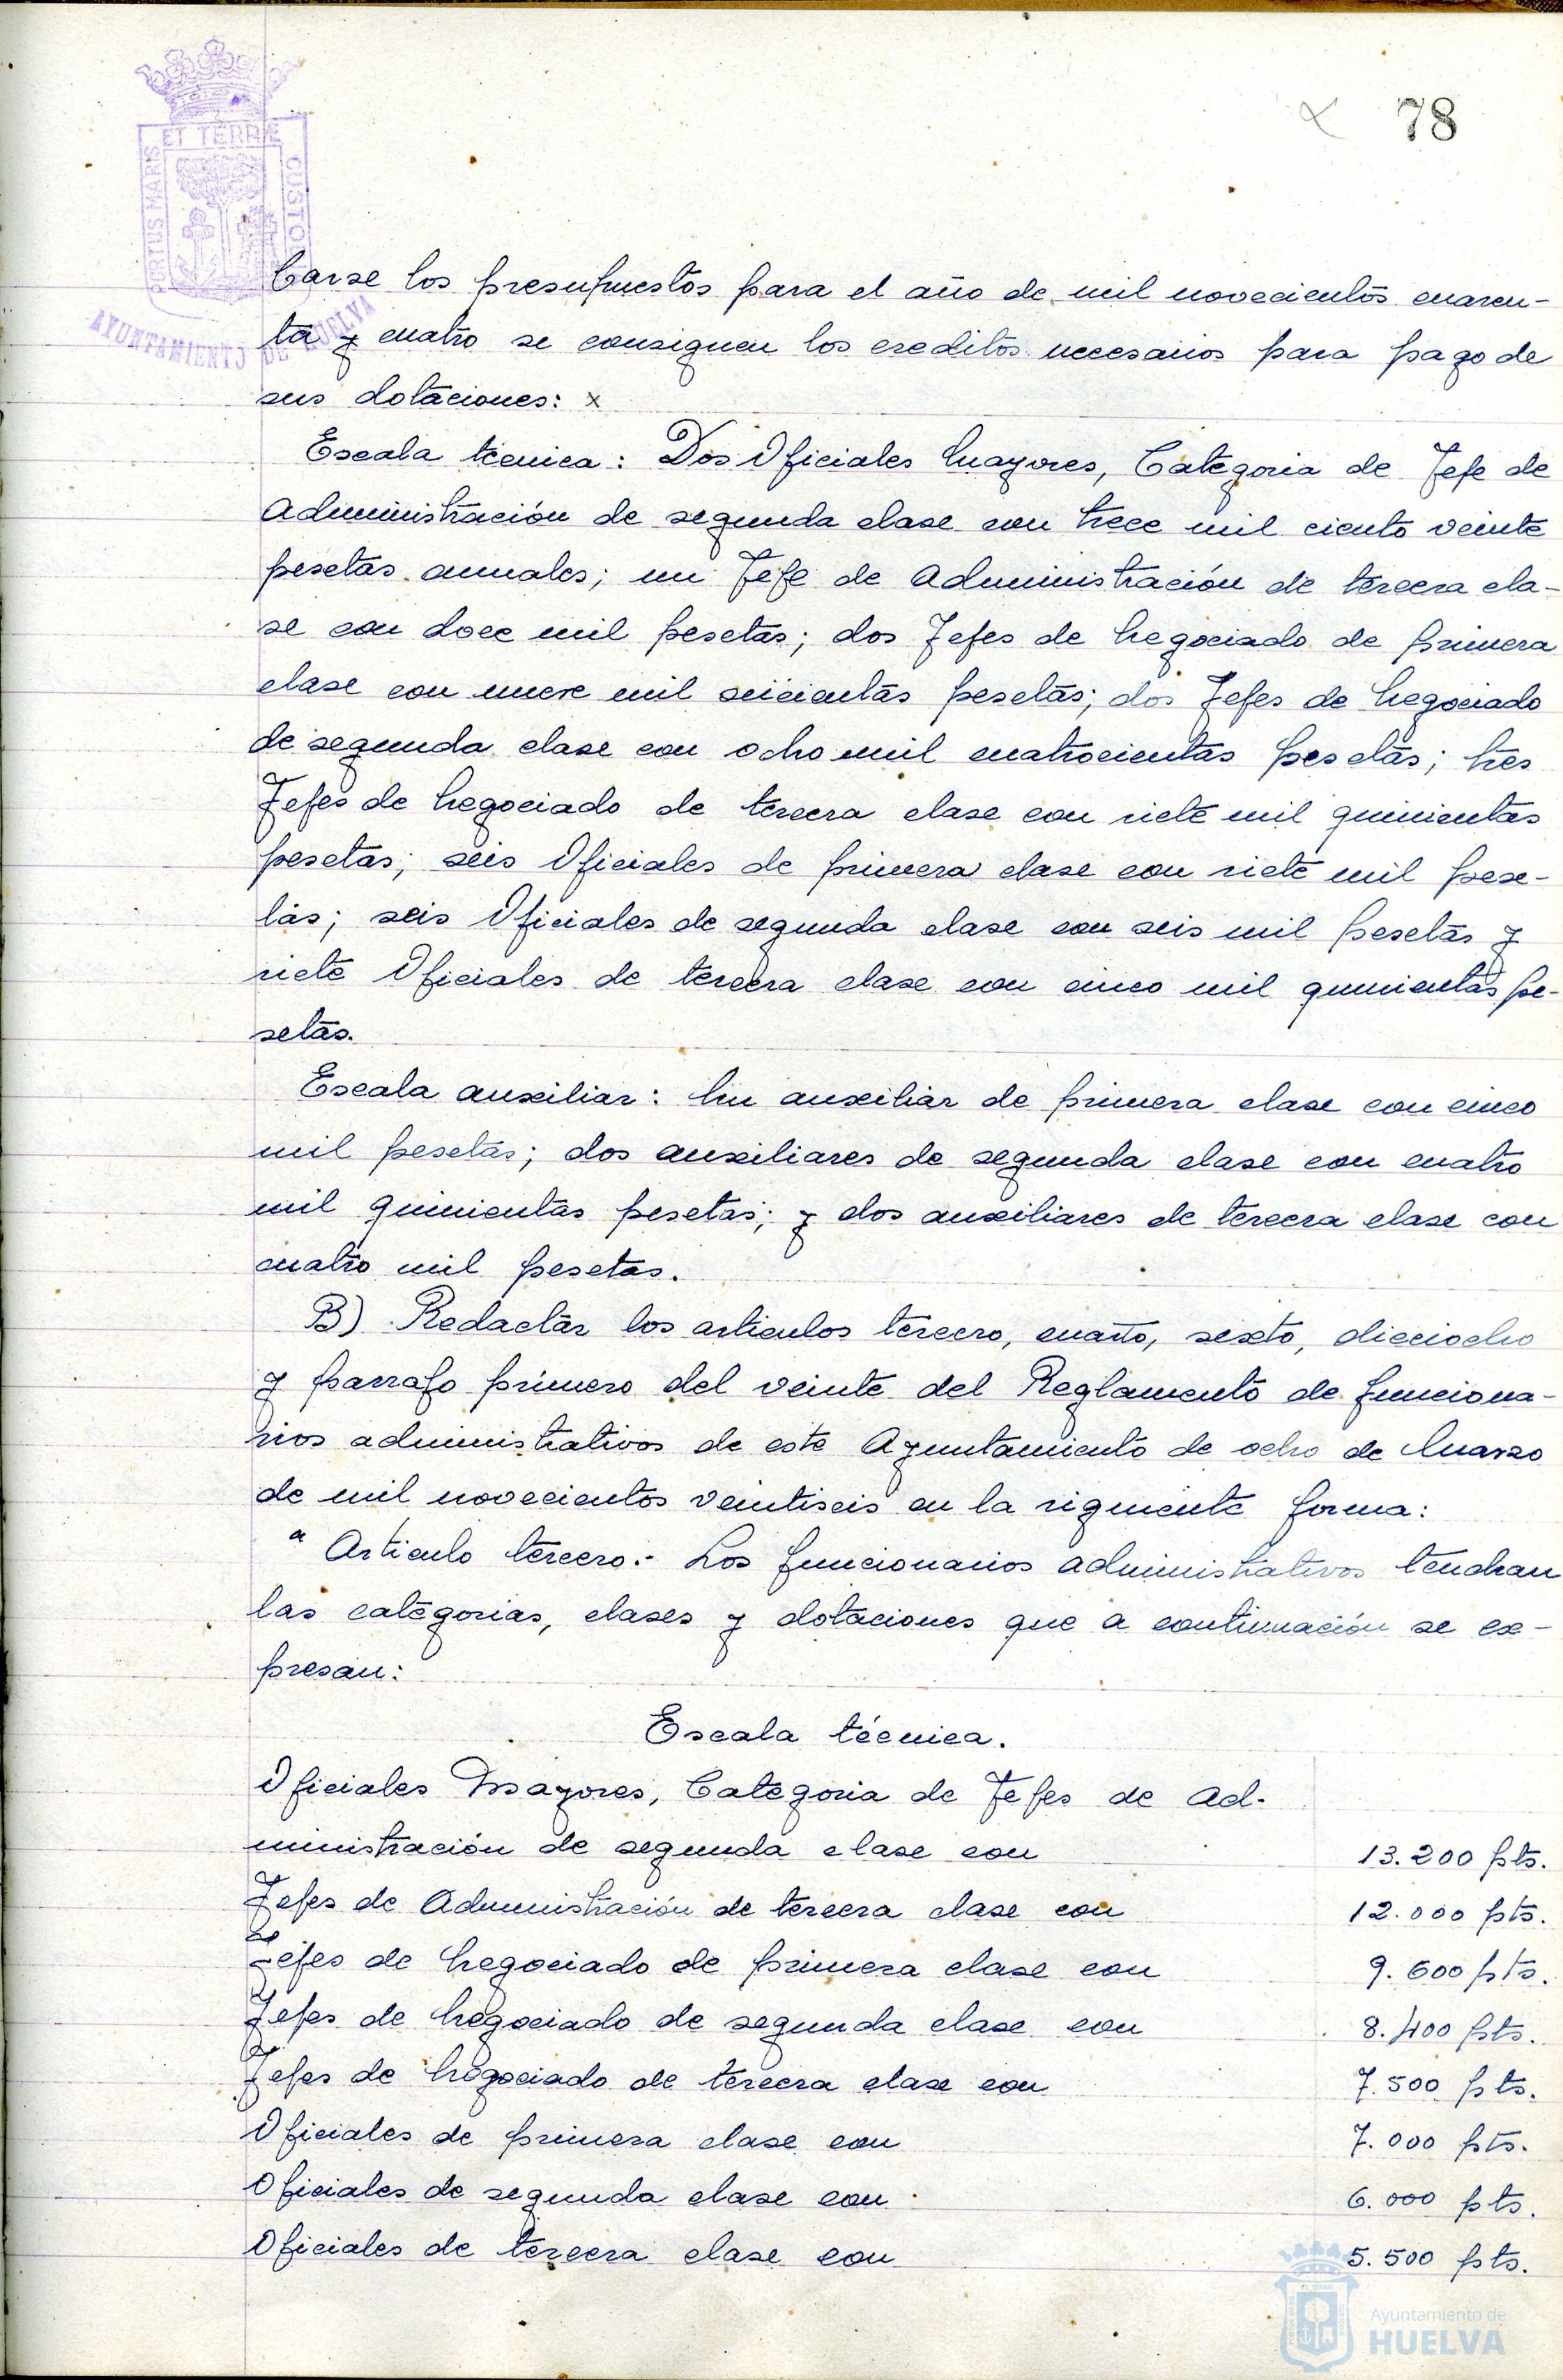 78
PORTUS MARIS ET TERRÆ CUSTODIA
AYUNTAMIENTO DE HUELVA
carse los presupuestos para el año de mil novecientos cuaren-
ta y cuatro se consignen los creditos necesarios para pago de
sus dotaciones: x
Escala técnica: Dos Oficiales Mayores, Categoria de Jefe de
Administración de segunda clase con trece mil ciento veinte
pesetas anuales; un Jefe de Administración de tercera cla-
se con doce mil pesetas; dos Jefes de Negociado de primera
clase con nueve mil seicientas pesetas; dos Jefes de Negociado
de segunda clase con ocho mil cuatrocientas pesetas; tres
Jefes de Negociado de tercera clase con siete mil quinientas
pesetas; seis Oficiales de primera clase con siete mil pese-
tas; seis Oficiales de segunda clase con seis mil pesetas y
siete Oficiales de tercera clase con cinco mil quinientas pe-
setas.
Escala auxiliar: Un auxiliar de primera clase con cinco
mil pesetas; dos auxiliares de segunda clase con cuatro
mil quinientas pesetas; y dos auxiliares de tercera clase con
cuatro mil pesetas.
B) Redactar los articulos tercero, cuarto, sexto, dieciocho
y parrafo primero del veinte del Reglamento de funciona-
rios administrativos de este Ayuntamiento de ocho de Marzo
de mil novecientos veintiseis en la siguiente forma:
" Articulo tercero.- Los funcionarios administrativos tendran
las categorias, clases y dotaciones que a continuación se ex-
presan:
Escala técnica.
Oficiales Mayores, Categoria de Jefes de Ad-
ministración de segunda clase con 13.200 pts.
Jefes de Administración de tercera clase con 12.000 pts.
Jefes de Negociado de primera clase con 9.600 pts.
Jefes de Negociado de segunda clase con 8.400 pts.
Jefes de Negociado de tercera clase con 7.500 pts.
Oficiales de primera clase con 7.000 pts.
Oficiales de segunda clase con 6.000 pts.
Oficiales de tercera clase con 5.500 pts.
Ayuntamiento de
HUELVA